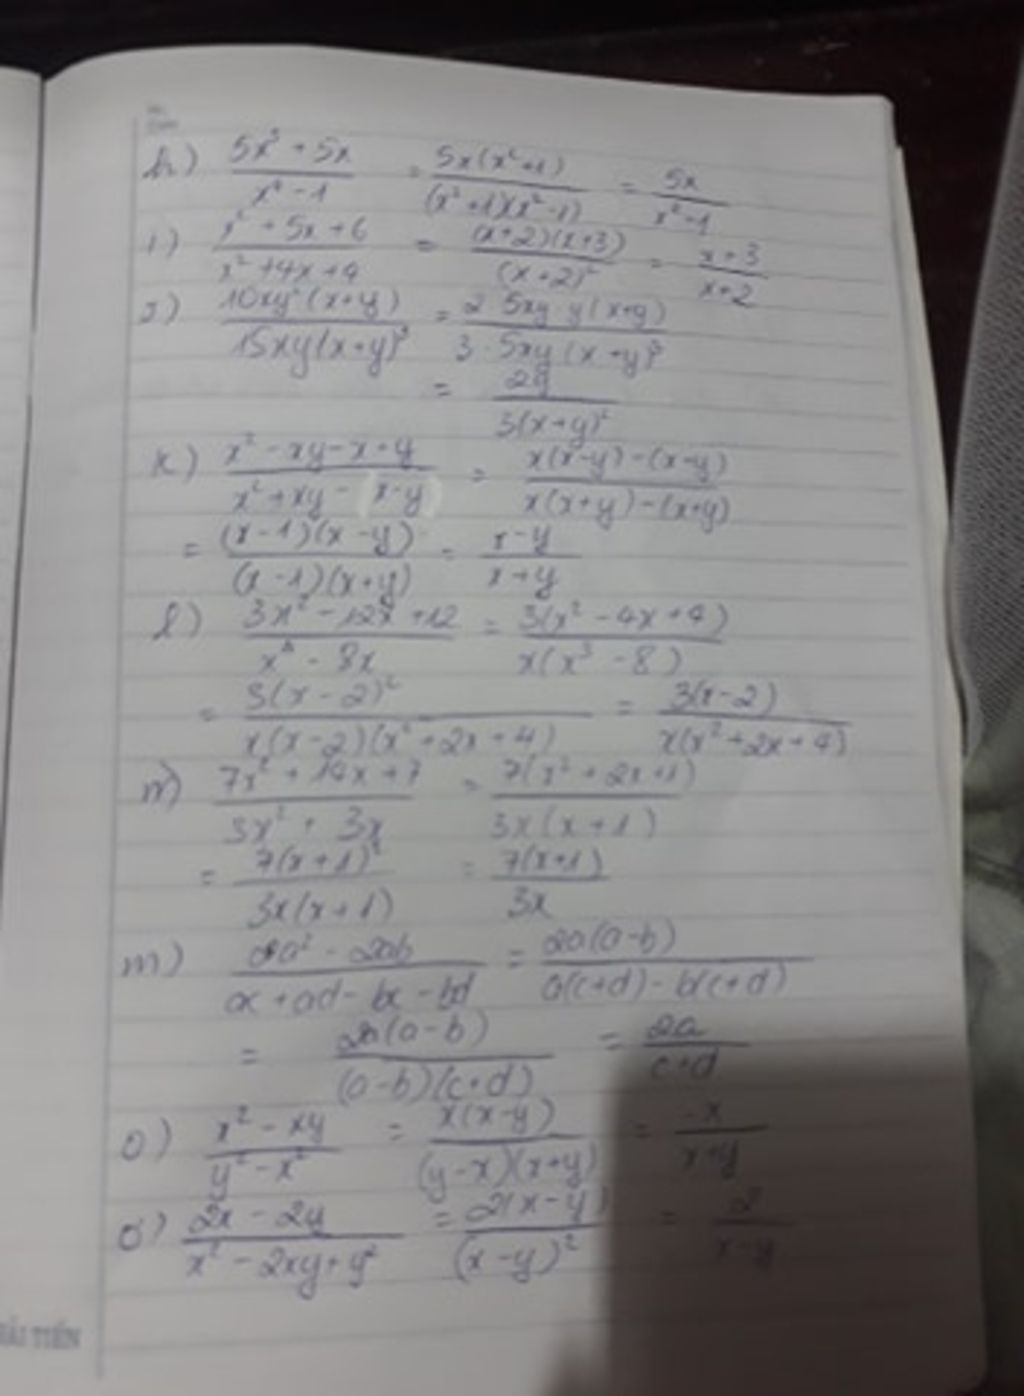 h) (5x³ + 5x)/(x⁴ - 1) = 5x(x²+1)/((x²+1)(x²-1)) = 5x/(x²-1)
i) (x² + 5x + 6)/(x² + 4x + 4) = (x+2)(x+3)/(x+2)² = (x+3)/(x+2)
j) 10xy²(x+y)/(15xy(x+y)³) = 2·5xy·y(x+y)/(3·5xy(x+y)³)
= 2y/(3(x+y)²)
k) (x² - xy - x + y)/(x² + xy - x - y) = (x(x-y) - (x-y))/(x(x+y) - (x+y))
= (x-1)(x-y)/((x-1)(x+y)) = (x-y)/(x+y)
l) (3x² - 12x + 12)/(x⁴ - 8x) = 3(x² - 4x + 4)/(x(x³ - 8))
= 3(x-2)²/(x(x-2)(x² + 2x + 4)) = 3(x-2)/(x(x² + 2x + 4))
n) (7x² + 14x + 7)/(3x² + 3x) = 7(x² + 2x + 1)/(3x(x+1))
= 7(x+1)²/(3x(x+1)) = 7(x+1)/(3x)
m) (2a² - 2ab)/(ac + ad - bc - bd) = 2a(a-b)/(a(c+d) - b(c+d))
= 2a(a-b)/((a-b)(c+d)) = 2a/(c+d)
o) (x² - xy)/(y² - x²) = x(x-y)/((y-x)(x+y)) = -x/(x+y)
(2x - 2y)/(x² - 2xy + y²) = 2(x-y)/(x-y)² = 2/(x-y)